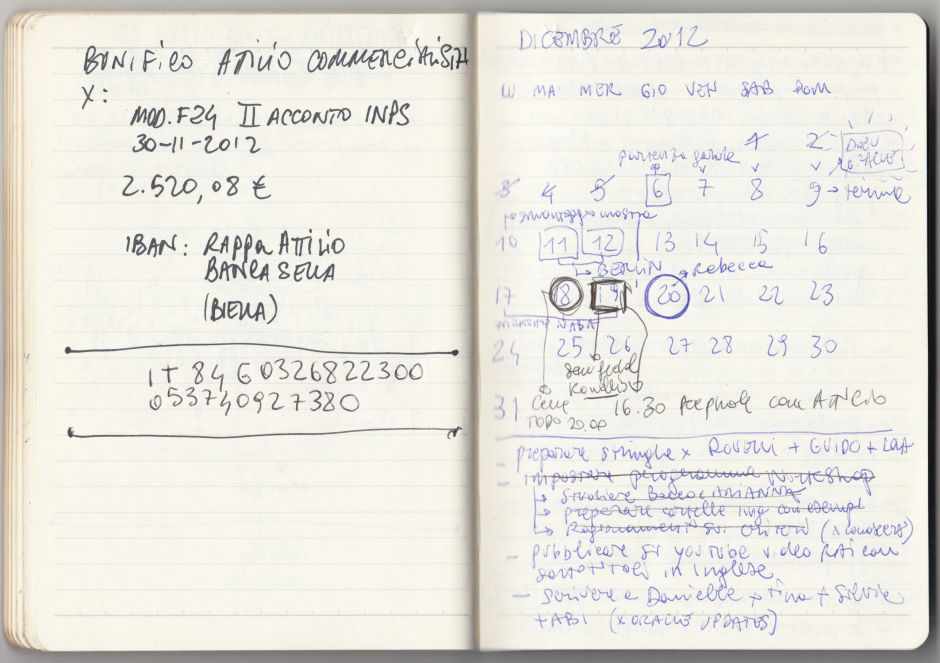 BONIFICO ATTILIO COMMERCIALISTA
X:
MOD. F24 II ACCONTO INPS
30-11-2012
2.520,08 €
IBAN: RAPPA ATTILIO
BANCA SELLA
(BIELLA)
IT 84 G 0326822300
053740927380
DICEMBRE 2012
LU MA MER GIO VEN SAB DOM
1 2
partenza
3 4 5 6 7 8 9 →
smontaggio mostra
10 11 12 13 14 15 16
→ BERLIN → Rebecca
17 18 19 20 21 22 23
workshop NABA
24 25 26 27 28 29 30
Cene
TOPO 20.00
31 16.30 con Attilio
- preparare stringhe x ROVELLI + GUIDO + 
- impostare programma WORKSHOP
→ studiare ARIANNA
→ preparare cartelle img con esempi
→ Ragionamenti su criteri
- pubblicare su youtube video RAI con
sottotitoli in inglese
- scrivere a Danielle + Tina + Silvia
+ ABI (x ORACLE UPDATES)